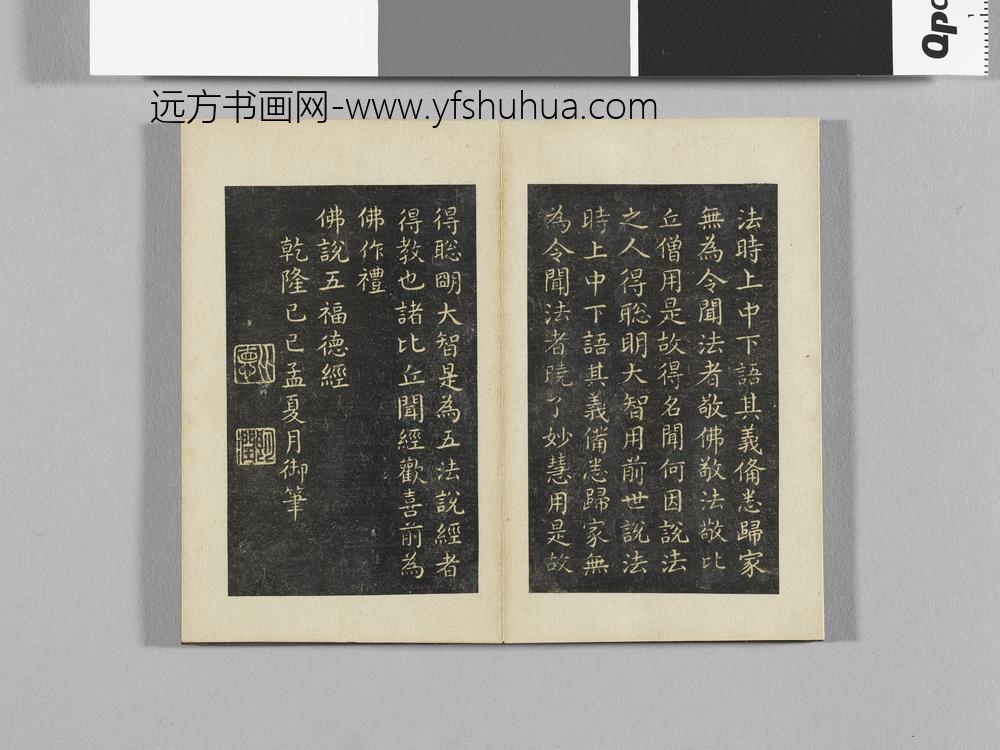 远方书画网-www.yfshuhua.com
法時上中下語其義備悉歸家
無為令聞法者敬佛敬法敬比
丘僧用是故得名聞何因說法
之人得聡明大智用前世說法
時上中下語其義備悉歸家無
為令聞法者曉了妙慧用是故
得聡明大智是為五法說經者
得教也諸比丘聞經歡喜前為
佛作禮
佛說五福德經
乾隆己巳孟夏月御筆